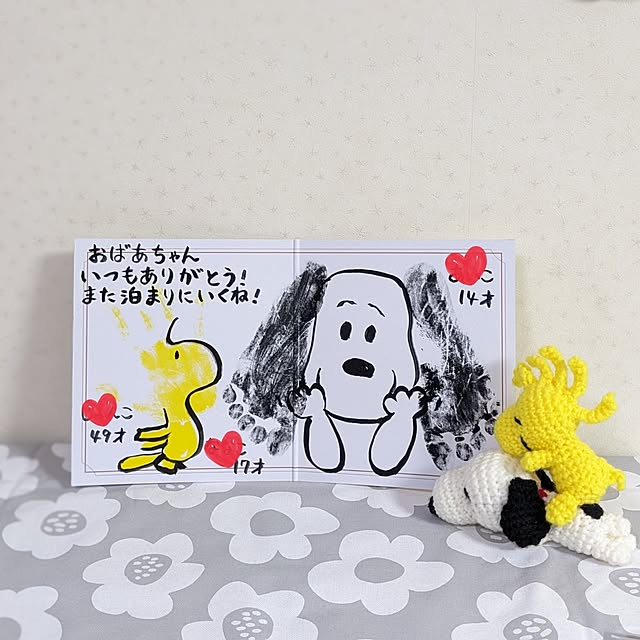 おばあちゃん
いつもありがとう!
また泊まりにいくね!
14才
49才
17才